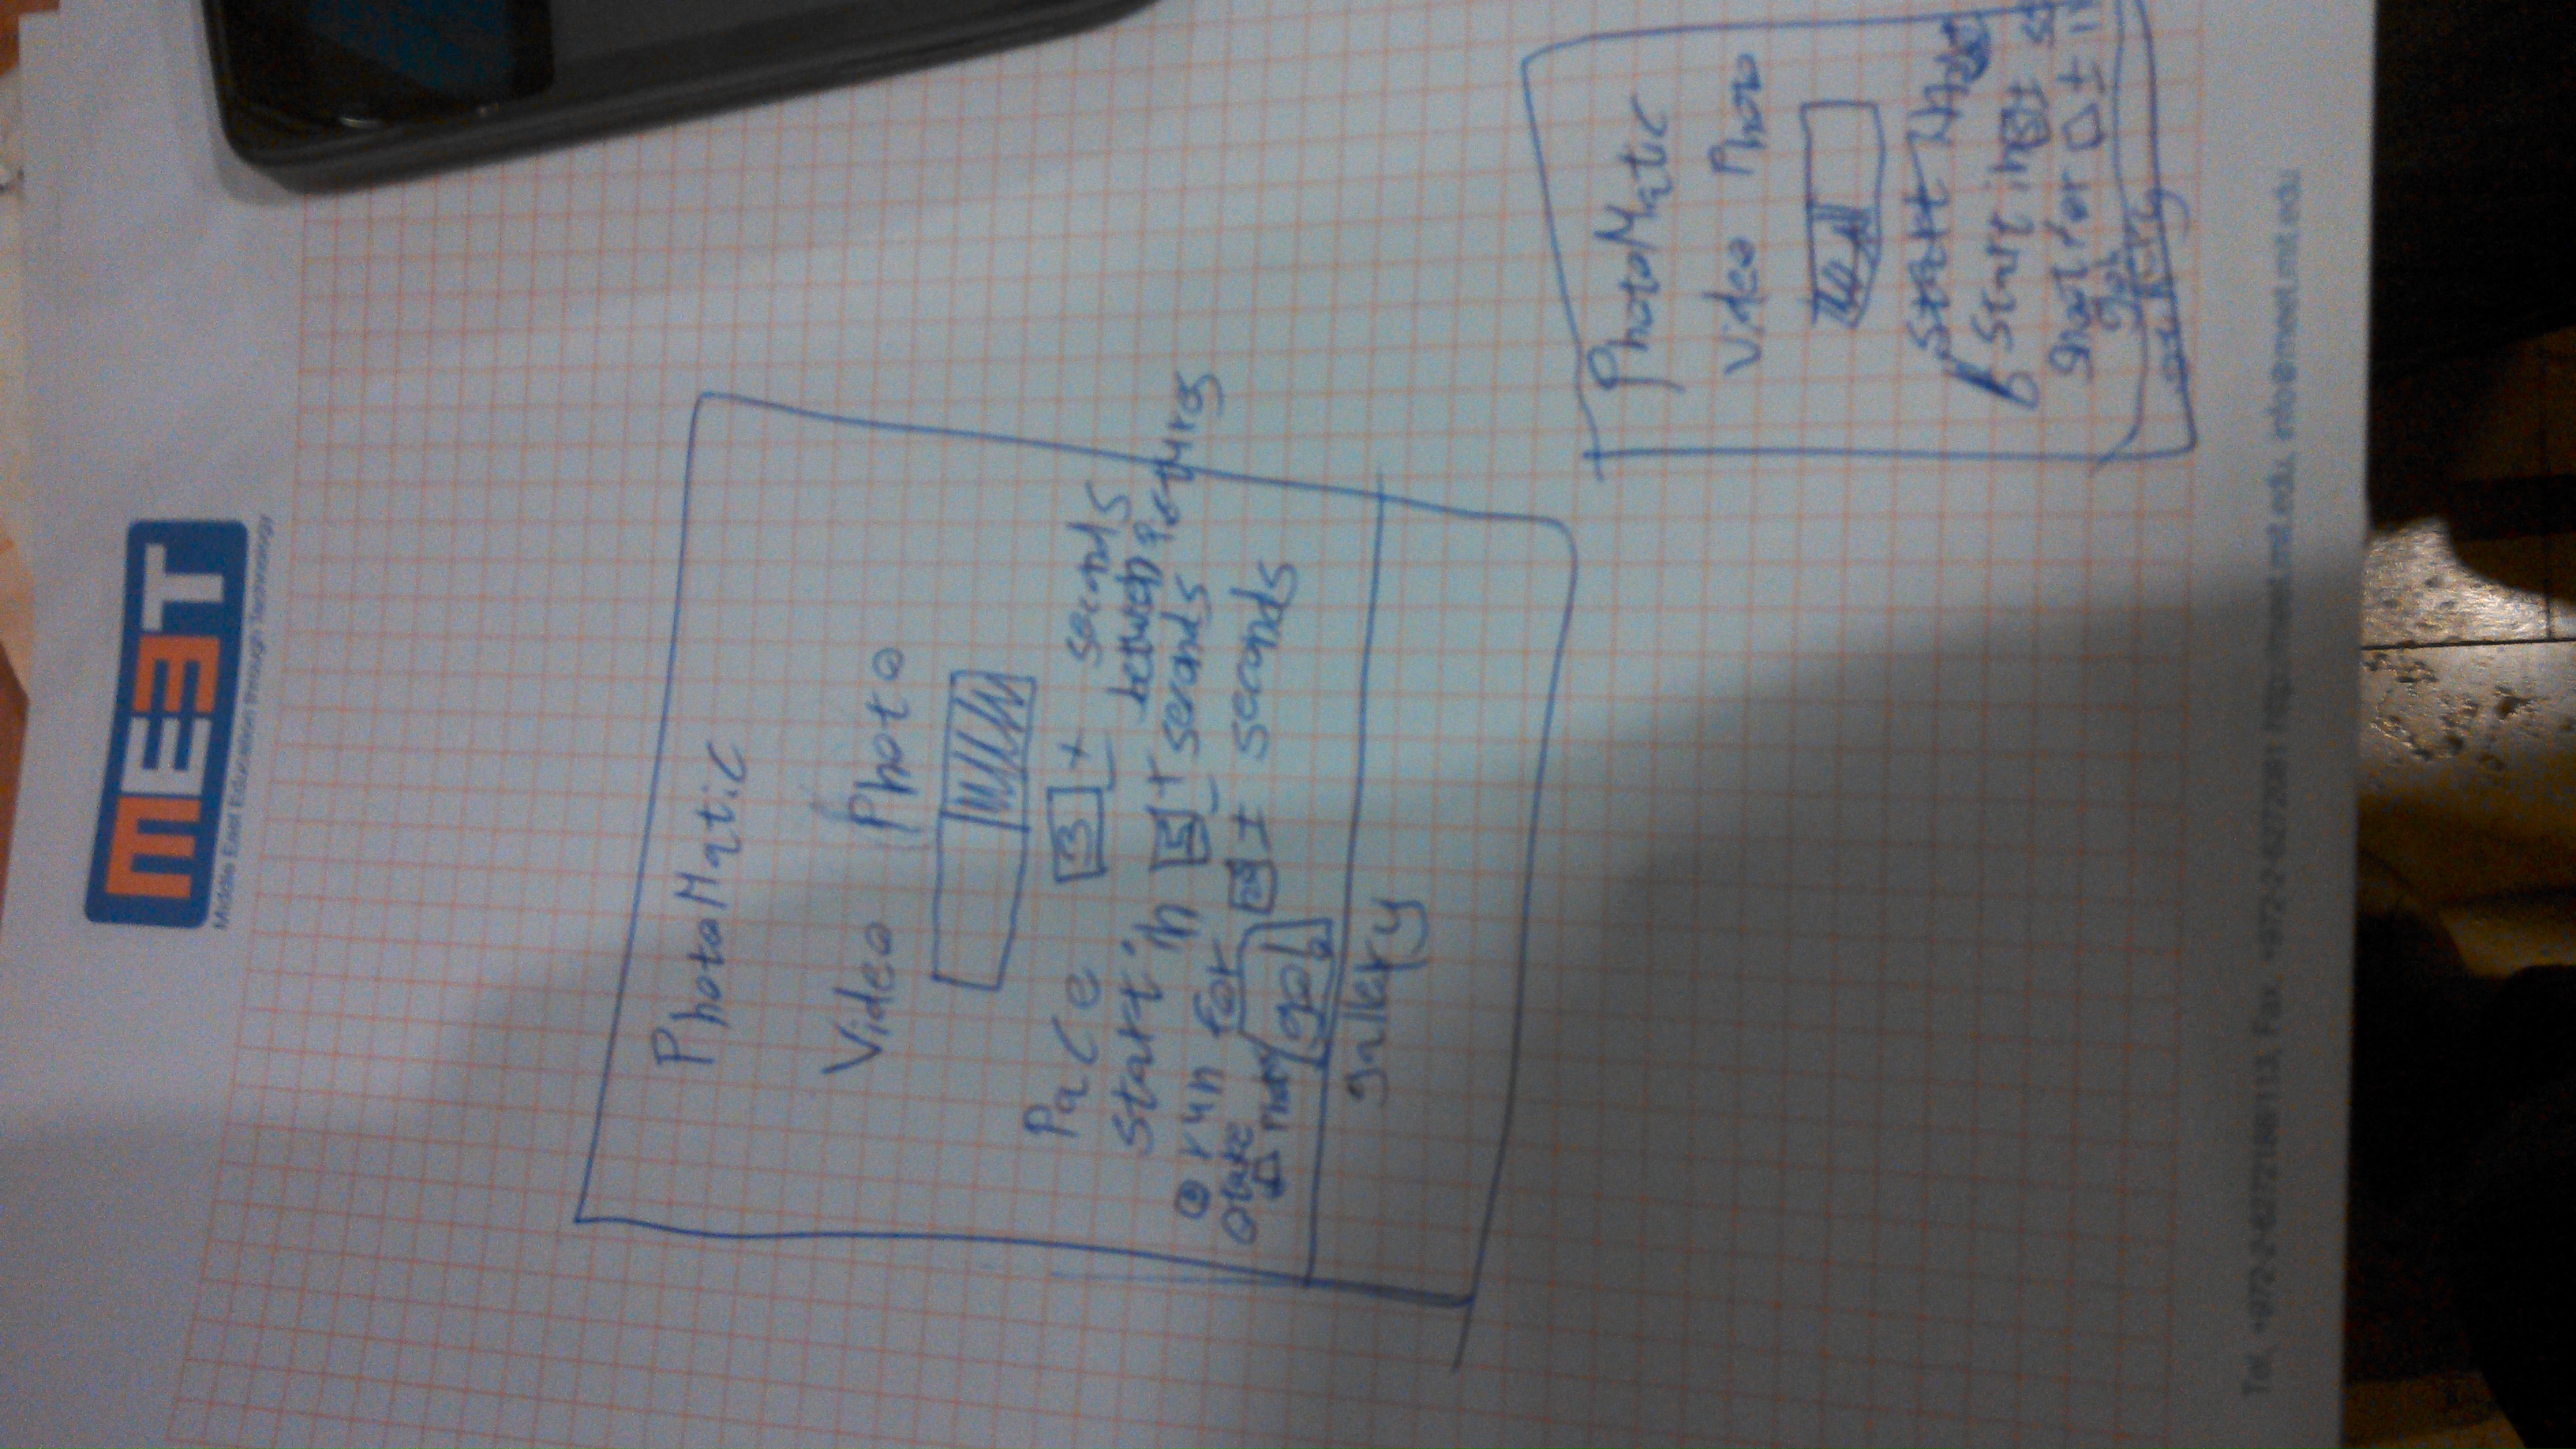 MEET
Middle East Education through Technology
PhotoMatic
Video Photo
Pace 3 + - seconds
between Pictures
start in 5 + - seconds
run for ± seconds
take
Photos
go!
gallery
PhotoMatic
Video Photo
start
start in 5 ±
Shoot for ±
Tel. +972-2-6272188/113, Fax. +972-2-6272081 http://meet.mit.edu, info@meet.mit.edu